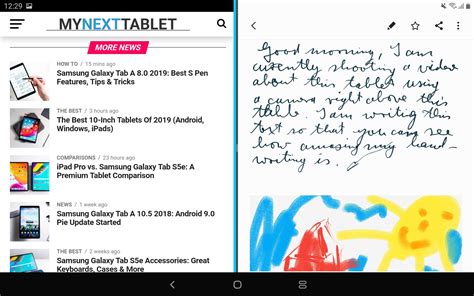 12:29
MYNEXTTABLET
MORE NEWS
HOW TO / 15 mins ago
Samsung Galaxy Tab A 8.0 2019: Best S Pen
Features, Tips & Tricks
THE BEST / 3 hours ago
The Best 10-Inch Tablets Of 2019 (Android,
Windows, iPads)
COMPARISONS / 23 hours ago
iPad Pro vs. Samsung Galaxy Tab S5e: A
Premium Tablet Comparison
NEWS / 1 week ago
Samsung Galaxy Tab A 10.5 2018: Android 9.0
Pie Update Started
THE BEST / 2 weeks ago
Samsung Galaxy Tab S5e Accessories: Great
Keyboards, Cases & More
Good morning, I am
currently shooting a video
about this tablet using
a camera right above this
table. I am writing this
text so that you can see
how amazing my hand-
writing is.